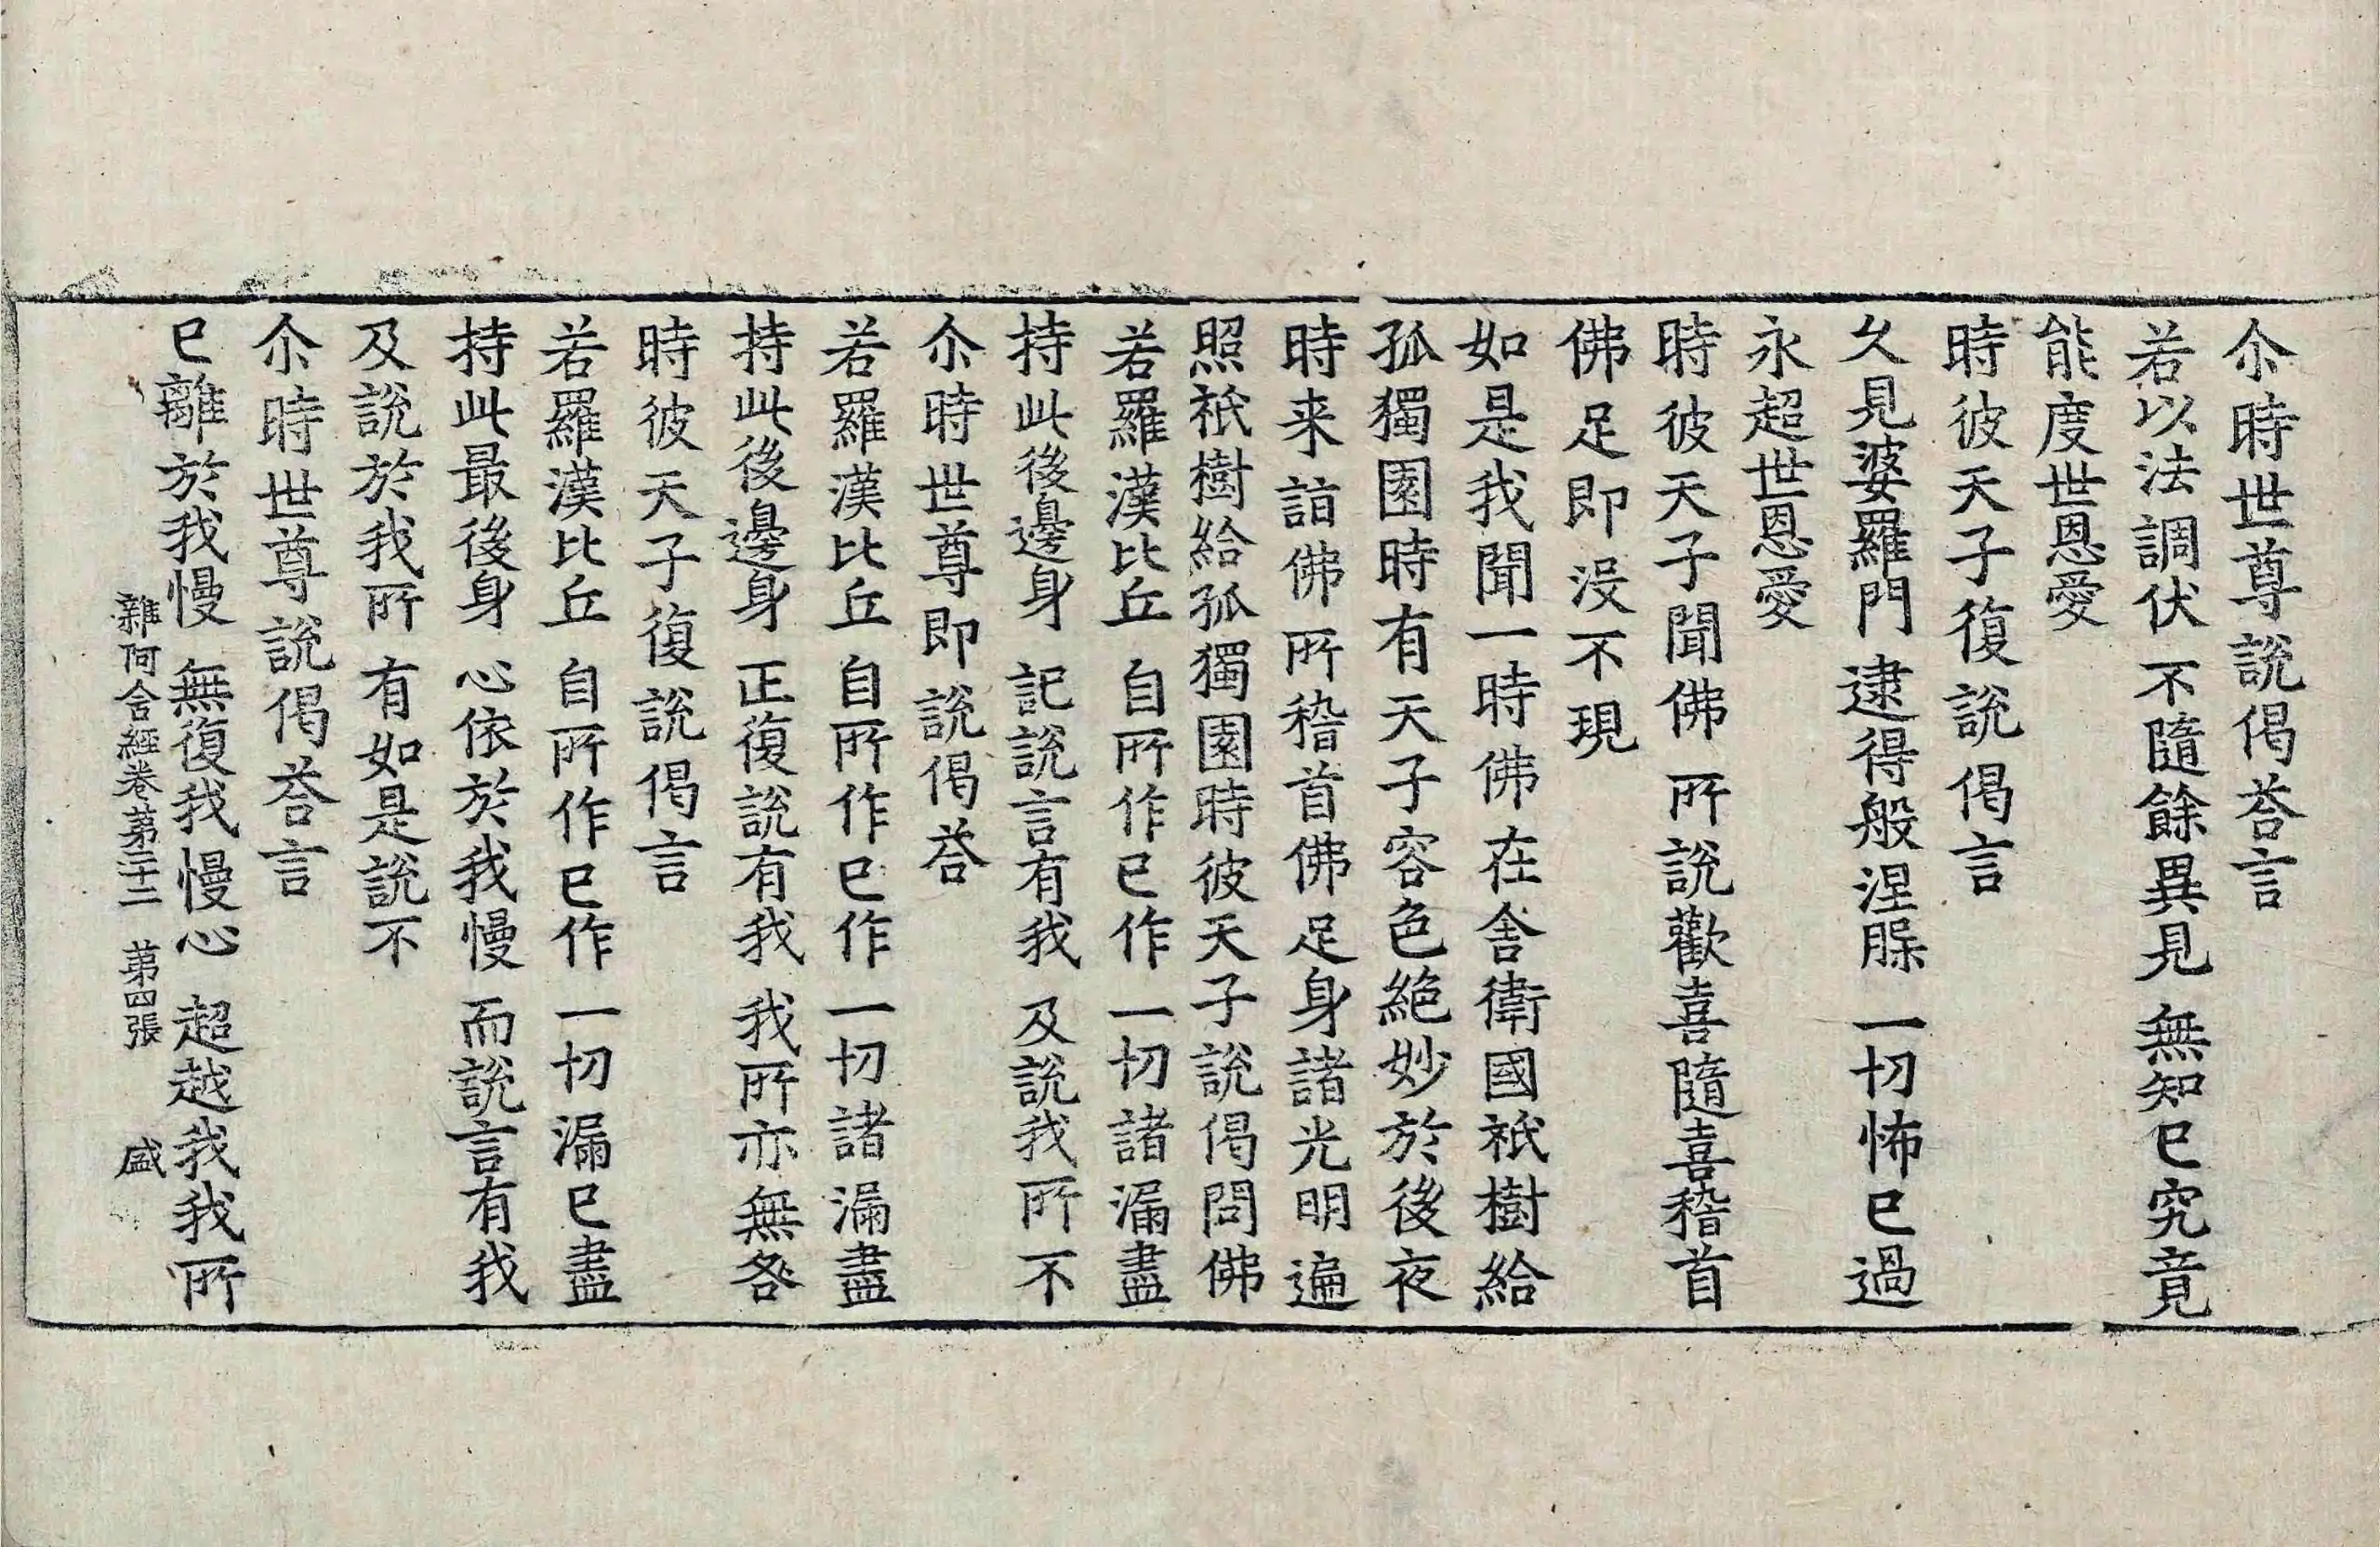 尒時世尊說偈荅言
若以法調伏 不隨餘異見 無知已究竟
能度世恩愛
時彼天子復說偈言
久見婆羅門 逮得般涅槃 一切怖已過
永超世恩愛
時彼天子聞佛所說歡喜隨喜稽首
佛足即没不現
如是我聞一時佛在舎衛國祇樹給
孤獨園時有天子容色絶妙於後夜
時来詣佛所稽首佛足身諸光明遍
照祇樹給孤獨園時彼天子說偈問佛
若羅漢比丘 自所作已作 一切諸漏盡
持此後邊身 記說言有我 及說我所不
尒時世尊即說偈荅
若羅漢比丘 自所作已作 一切諸漏盡
持此後邊身 正復說有我 我所亦無咎
時彼天子復說偈言
若羅漢比丘 自所作已作 一切漏已盡
持此最後身 心依於我慢 而說言有我
及說於我所 有如是說不
尒時世尊說偈荅言
已離於我慢 無復我慢心 超越我我所
雜阿含經卷第二十二 第四張 盛